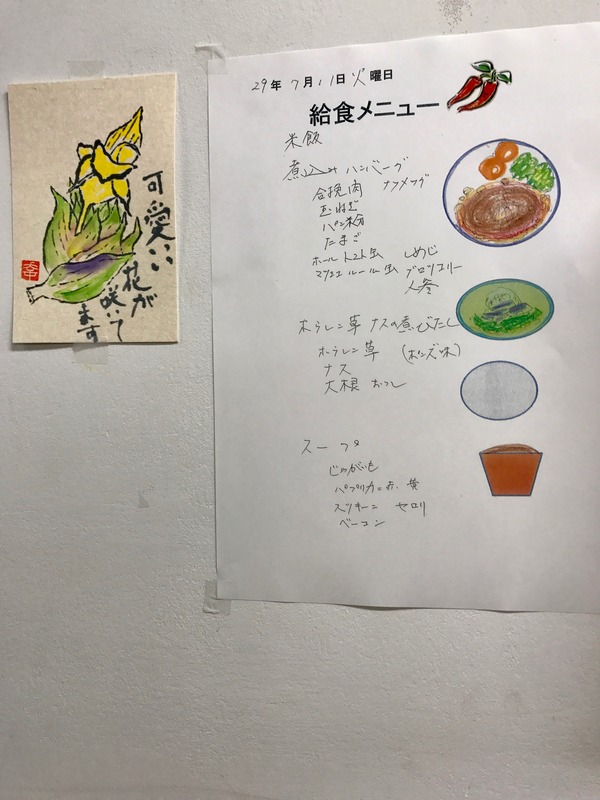 可愛い
花が
咲いて
ます
幸
29年 7月 11日 火 曜日
給食メニュー
米飯
煮込み ハンバーグ
合挽肉 ナツメッグ
玉ねぎ
パン粉
たまご
ホールトマト缶 しめじ
ブロッコリー
人参
ホウレン草 ナスの煮びたし
ホウレン草 (ポンズ味)
ナス
大根 おろし
スープ
じゃがいも
パプリカ 赤. 黄
ズッキーニ セロリ
ベーコン